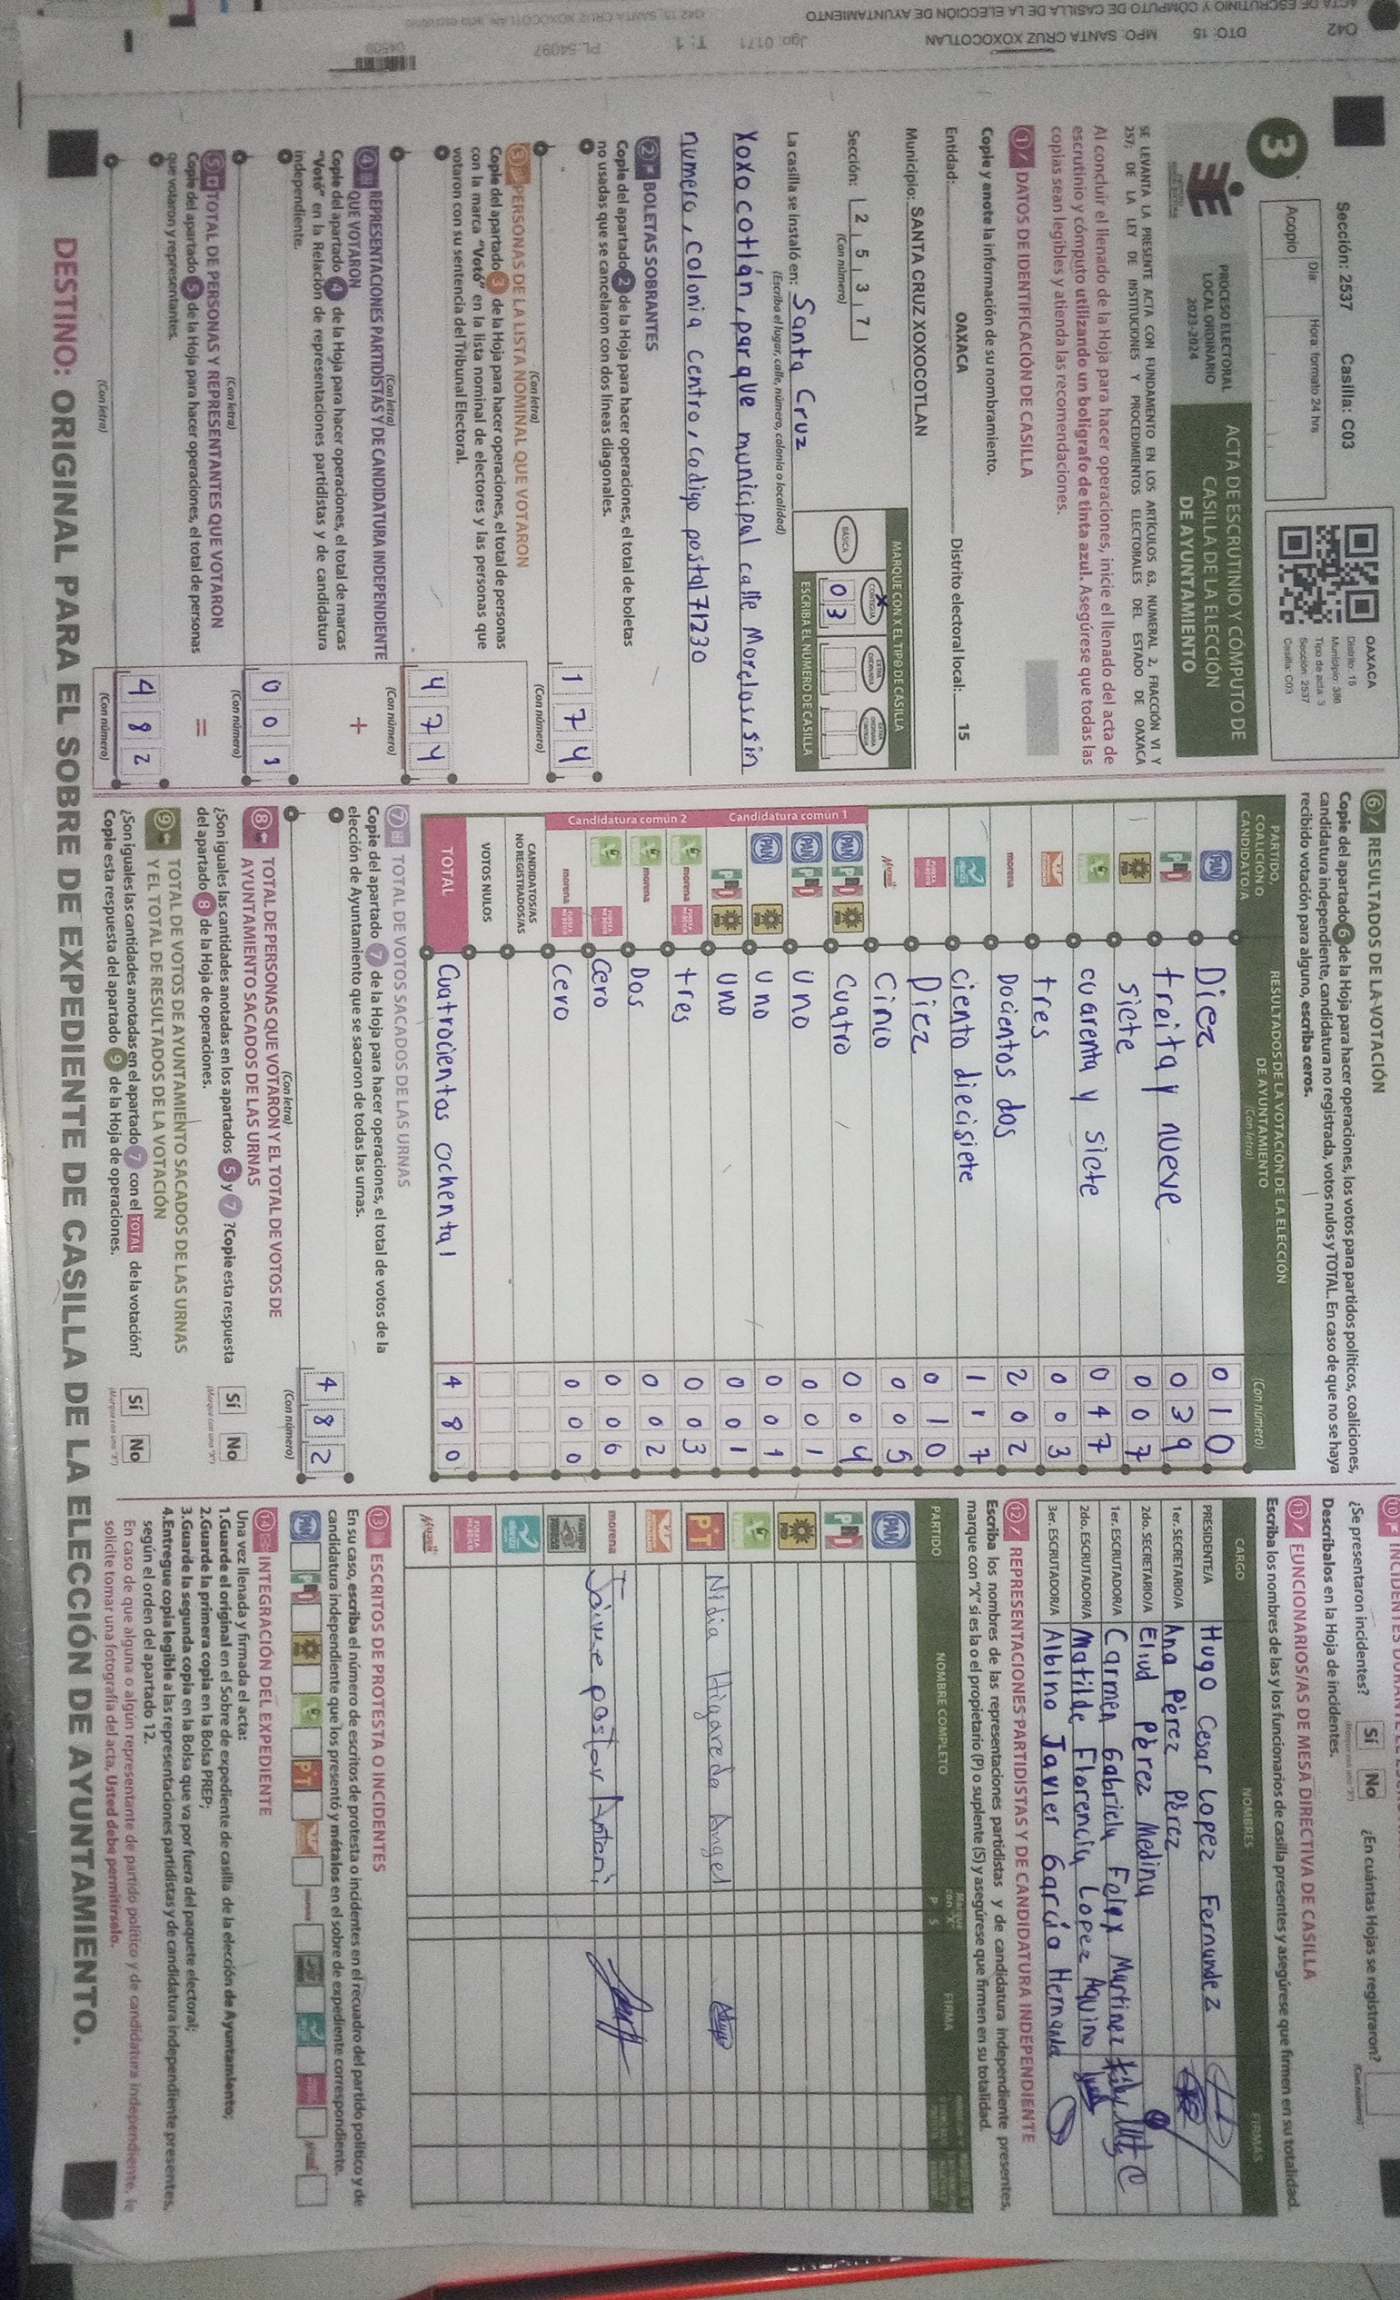 Sección: 2537 Casilla: C03
3
Acopio
Día
Hora: formato 24 hrs
OAXACA
Distrito: 15
Municipio: 386
Tipo de acta: 3
Sección: 2537
Casilla: C03
PROCESO ELECTORAL
LOCAL ORDINARIO
2023-2024
ACTA DE ESCRUTINIO Y CÓMPUTO DE
CASILLA DE LA ELECCIÓN
DE AYUNTAMIENTO
SE LEVANTA LA PRESENTE ACTA CON FUNDAMENTO EN LOS ARTÍCULOS 63, NUMERAL 2, FRACCIÓN VI Y
257; DE LA LEY DE INSTITUCIONES Y PROCEDIMIENTOS ELECTORALES DEL ESTADO DE OAXACA
Al concluir el llenado de la Hoja para hacer operaciones, inicie el llenado del acta de
escrutinio y cómputo utilizando un bolígrafo de tinta azul. Asegúrese que todas las
copias sean legibles y atienda las recomendaciones.
1 DATOS DE IDENTIFICACIÓN DE CASILLA
Copie y anote la información de su nombramiento.
Entidad: OAXACA Distrito electoral local: 15
Municipio: SANTA CRUZ XOXOCOTLAN
Sección: 2 5 3 7
(Con número)
MARQUE CON X EL TIPO DE CASILLA
BÁSICA
CONTIGUA
X
0 3
ESCRIBA EL NÚMERO DE CASILLA
La casilla se instaló en: Santa Cruz
(Escriba el lugar, calle, número, colonia o localidad)
Xoxocotlán, parque municipal calle Morelos, sin
numero, colonia centro, codigo postal 71230
2 BOLETAS SOBRANTES
Copie del apartado 2 de la Hoja para hacer operaciones, el total de boletas
no usadas que se cancelaron con dos líneas diagonales.
1 7 4
(Con letra) (Con número)
3 PERSONAS DE LA LISTA NOMINAL QUE VOTARON
Copie del apartado 3 de la Hoja para hacer operaciones, el total de personas
con la marca "Votó" en la lista nominal de electores y las personas que
votaron con su sentencia del Tribunal Electoral.
4 7 4
(Con letra) (Con número)
4 REPRESENTACIONES PARTIDISTAS Y DE CANDIDATURA INDEPENDIENTE
QUE VOTARON
+
Copie del apartado 4 de la Hoja para hacer operaciones, el total de marcas
"Votó" en la Relación de representaciones partidistas y de candidatura
independiente.
(Con letra) (Con número)
5 TOTAL DE PERSONAS Y REPRESENTANTES QUE VOTARON
=
Copie del apartado 5 de la Hoja para hacer operaciones, el total de personas
que votaron y representantes.
4 8 2
(Con letra) (Con número)
6 RESULTADOS DE LA VOTACIÓN
Copie del apartado 6 de la Hoja para hacer operaciones, los votos para partidos políticos, coaliciones,
candidatura independiente, candidatura no registrada, votos nulos y TOTAL. En caso de que no se haya
recibido votación para alguno, escriba ceros.
PARTIDO,
COALICIÓN O
CANDIDATO/A
RESULTADOS DE LA VOTACIÓN DE LA ELECCIÓN
DE AYUNTAMIENTO
(Con letra) (Con número)
PAN Diez 0 1 0
PRI treita y nueve 0 3 9
PRD siete 0 0 7
cuarenta y siete 0 4 7
tres 0 0 3
morena Docientos dos 2 0 2
ciento diecisiete 1 1 7
Diez 0 1 0
Cinco 0 0 5
Candidatura común 1
PAN PRI PRD Cuatro 0 0 4
PAN PRI Uno 0 0 1
PAN PRD Uno 0 0 1
PRI PRD Uno 0 0 1
Candidatura común 2
morena tres 0 0 3
morena Dos 0 0 2
cero 0 0 6
morena Cero 0 0 0
CANDIDATOS/AS
NO REGISTRADOS/AS
VOTOS NULOS
TOTAL Cuatrocientos ochental 4 8 0
7 TOTAL DE VOTOS SACADOS DE LAS URNAS
Copie del apartado 7 de la Hoja para hacer operaciones, el total de votos de la
elección de Ayuntamiento que se sacaron de todas las urnas.
4 8 2
(Con letra) (Con número)
8 TOTAL DE PERSONAS QUE VOTARON Y EL TOTAL DE VOTOS DE
AYUNTAMIENTO SACADOS DE LAS URNAS
¿Son iguales las cantidades anotadas en los apartados 5 y 7 ?Copie esta respuesta
del apartado 8 de la Hoja de operaciones.
Sí No
9 TOTAL DE VOTOS DE AYUNTAMIENTO SACADOS DE LAS URNAS
Y EL TOTAL DE RESULTADOS DE LA VOTACIÓN
¿Son iguales las cantidades anotadas en el apartado 7 con el TOTAL de la votación?
Copie esta respuesta del apartado 9 de la Hoja de operaciones.
Sí No
¿Se presentaron incidentes? Sí No ¿En cuántas Hojas se registraron?
Descríbalos en la Hoja de incidentes.
11 FUNCIONARIOS/AS DE MESA DIRECTIVA DE CASILLA
Escriba los nombres de las y los funcionarios de casilla presentes y asegúrese que firmen en su totalidad.
CARGO NOMBRES FIRMAS
PRESIDENTE/A Hugo Cesar Lopez Fernandez
1er. SECRETARIO/A Ana Pèrez Pèrez
2do. SECRETARIO/A Eliud Pèrez Medina
1er. ESCRUTADOR/A Carmen Gabriela Felex Martinez
2do. ESCRUTADOR/A Matilde Florencia Lopez Aquino
3er. ESCRUTADOR/A Albino Javier García Hernande
12 REPRESENTACIONES PARTIDISTAS Y DE CANDIDATURA INDEPENDIENTE
Escriba los nombres de las representaciones partidistas y de candidatura independiente presentes,
marque con "X" si es la o el propietario (P) o suplente (S) y asegúrese que firmen en su totalidad.
PARTIDO NOMBRE COMPLETO P S FIRMA
PAN
PRI
PRD
PT Nidia Higareda Angel
morena Jaime pastor Antoni
13 ESCRITOS DE PROTESTA O INCIDENTES
En su caso, escriba el número de escritos de protesta o incidentes en el recuadro del partido político y de
candidatura independiente que los presentó y métalos en el sobre de expediente correspondiente.
14 INTEGRACIÓN DEL EXPEDIENTE
Una vez llenada y firmada el acta:
1.Guarde el original en el Sobre de expediente de casilla de la elección de Ayuntamiento;
2.Guarde la primera copia en la Bolsa PREP;
3.Guarde la segunda copia en la Bolsa que va por fuera del paquete electoral;
4.Entregue copia legible a las representaciones partidistas y de candidatura independiente presentes,
según el orden del apartado 12.
En caso de que alguna o algún representante de partido político y de candidatura independiente, le
solicite tomar una fotografía del acta, Usted debe permitírselo.
DESTINO: ORIGINAL PARA EL SOBRE DE EXPEDIENTE DE CASILLA DE LA ELECCIÓN DE AYUNTAMIENTO.
042 DTO: 15 MPO: SANTA CRUZ XOXOCOTLAN Jgo: 0171 T: 1 PL:54097
ACTA DE ESCRUTINIO Y CÓMPUTO DE CASILLA DE LA ELECCIÓN DE AYUNTAMIENTO